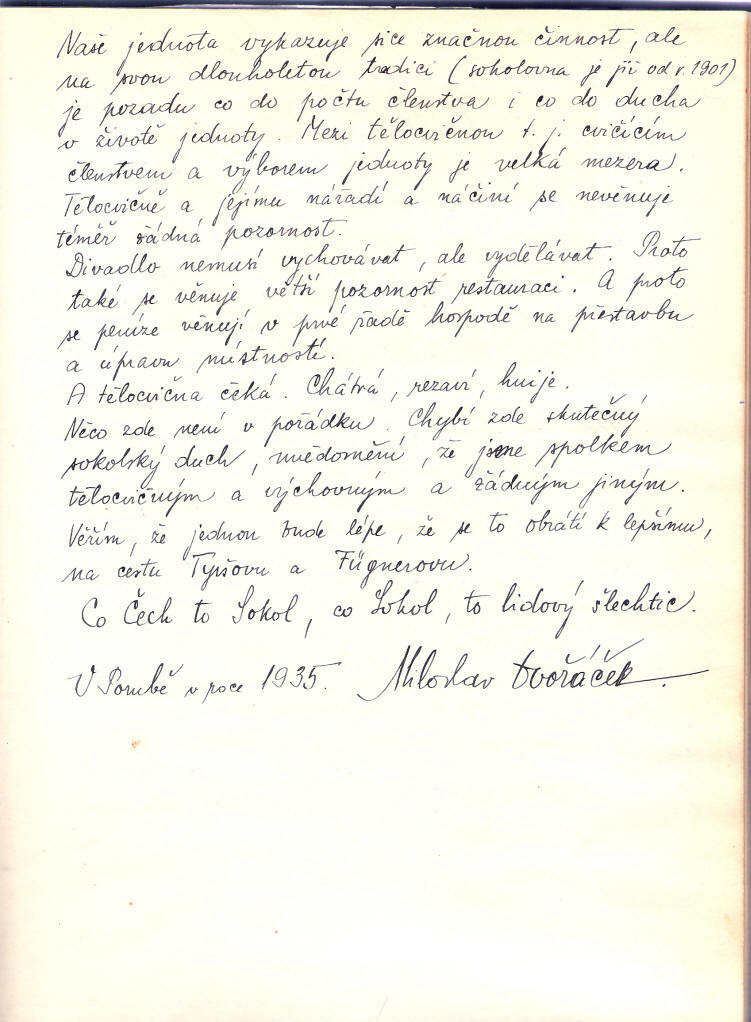 Naše jednota vykazuje sice značnou činnost, ale
na svou dlouholetou tradici (sokolovna je již od r. 1901)
je pozadu co do počtu členstva i co do ducha
v životě jednoty. Mezi tělocvičnou t. j. cvičícím
členstvem a výborem jednoty je velká mezera.
Tělocvičně a jejímu nářadí a náčiní se nevěnuje
téměř žádná pozornost.
Divadlo nemusí vychovávat, ale vydělávat. Proto
také se věnuje větší pozornost restauraci. A proto
se peníze věnují v prvé řadě hospodě na přestavbu
a úpravu místností.
A tělocvična čeká. Chátrá, rezaví, hnije.
Něco zde není v pořádku. Chybí zde skutečný
sokolský duch, uvědomění, že jsme spolkem
tělocvičným a výchovným a žádným jiným.
Věřím, že jednou bude lépe, že se to obrátí k lepšímu,
na cestu Tyršovu a Fügnerovu.
Co Čech to Sokol, co Sokol, to lidový šlechtic.
V Porubě v roce 1935. Miloslav Dvořáček.